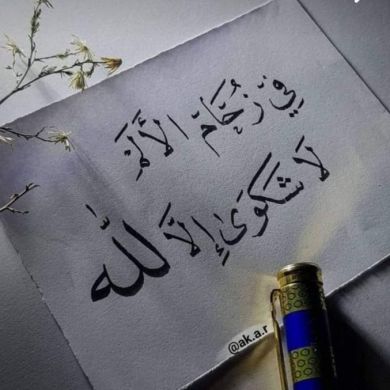 فِي زُحَامِ الأَلَمْ
لَا شَكْوَىٰ إِلَّا لله
@ak.a.r